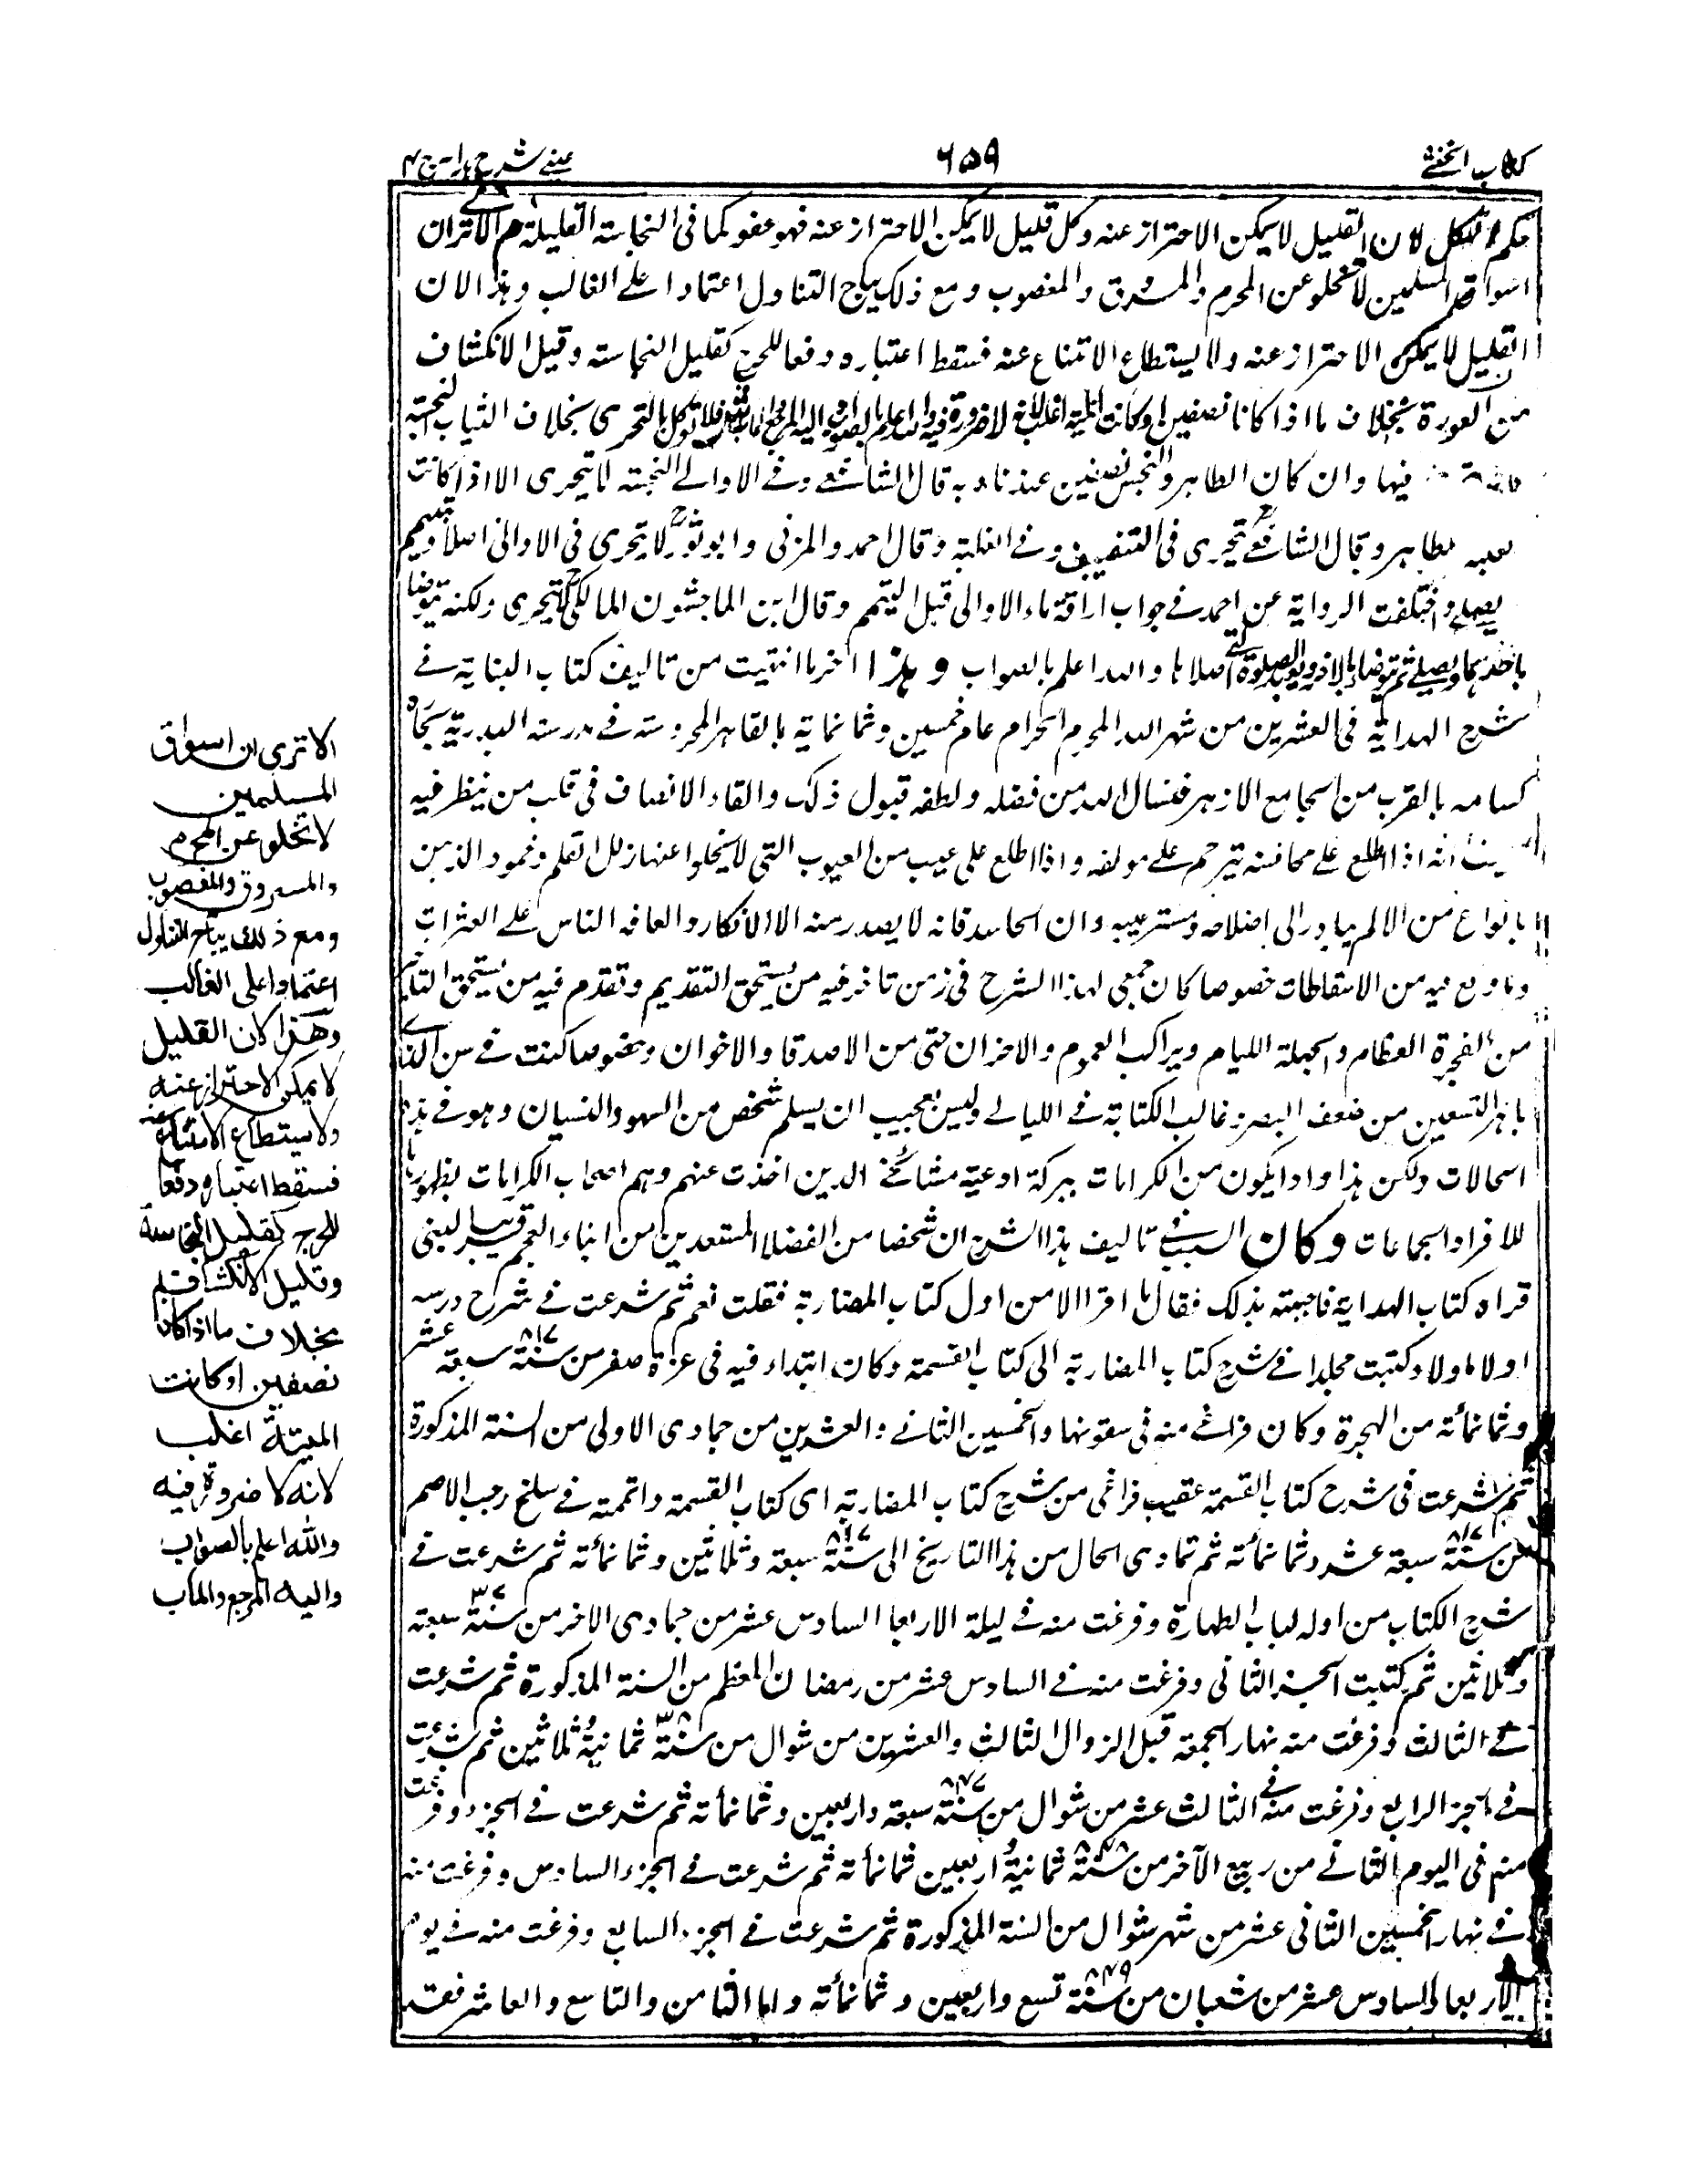 كتاب الخنثى
٦٥٩
عيني شرح هداية ج ٤
حكم الكل لان القليل لا يمكن الاحتراز عنه وكل قليل لا يمكن الاحتراز عنه فهو عفو كما في النجاسة القليلة م الا ترى ان
اسواق المسلمين لا تخلو عن المحرم والمسروق والمغصوب ومع ذلك يباح التناول اعتمادا على الغالب وهذا لان
القليل لا يمكن الاحتراز عنه ولا يستطاع الامتناع عنه فسقط اعتباره دفعا للحرج كقليل النجاسة وقليل الانكشاف
من العورة بخلاف ما اذا كانا نصفين او كانت الميتة اغلب لانه لا ضرورة فيه والله اعلم بالصواب واليه المرجع والمآب فلا توكل بالتحري بخلاف الثياب النجسة
فيها وان كان الطاهر والنجس نصفين عندنا وبه قال الشافعي وفي الاواني النجسة لا يتحرى الا اذا كانت
طاهر وقال الشافعي يتحرى في التنصيف وفي الغلبة وقال احمد والمزني وابو ثور لا يتحرى في الاواني اصلا ويتيمم
يصلي واختلفت الرواية عن احمد في جواب اراقة ماء الاواني قبل التيمم وقال ابن الماجشون المالكي يتحرى ولكنه يتوضأ
باحدهما ويصلي ثم يتوضأ بالآخر ويعيد الصلوة التي صلاها والله اعلم بالصواب وهذا آخر ما انتهيت من تاليف كتاب البناية في
شرح الهداية في العشرين من شهر الله المحرم الحرام عام خمسين وثمانماية بالقاهرة المحروسة في مدرسته البدرية بحارة
كتامه بالقرب من الجامع الازهر فنسال الله من فضله ولطفه قبول ذلك والقاء الانصاف في قلب من ينظر فيه
انه اذا اطلع على محاسنه يترحم على مولفه واذا اطلع على عيب من العيوب التي لا يخلوا عنها زلل القلم وخمود الذهن
بانواع من الالم يبادر الى اصلاحه وستر عيبه وان الحاسد فانه لا يصدر منه الا الانكار والعافه الناس على العثرات
وما وقع فيه من الاسقاطات خصوصا كان جمعي لهذا الشرح في زمن تاخر فيه من يستحق التقديم وتقدم فيه من يستحق التاخير
من الفجرة العظام والجهلة الليام ويراكب الهموم والاحزان حتى من الاصدقا والاخوان وخصوصا كنت في سن الذي
ناهز التسعين من ضعف البصر وغالب الكتابة في الليالي وليس بعجيب ان يسلم شخص من السهو والنسيان وهو في هذه
الحالات ولكن هذا وادا يكون من الكرامات ببركة ادعية مشائخي الدين اخذت عنهم وهم اصحاب الكرامات بظهورها
للافراد والجماعات وكان السبب في تاليف هذا الشرح ان شخصا من الفضلا المستعدين من ابناء العجم
قراه كتاب الهداية فاجبته بذلك فقال ما اقرا الا من اول كتاب المضاربة فقلت نعم ثم شرعت في شرح درسه
اولا فاولا وكتبت مجلدا في شرح كتاب المضاربة الى كتاب القسمة وكان ابتداء فيه في غرة صفر من سنة ٨١٧ سبعة عشر
وثمانمائة من الهجرة وكان فراغي منه في الخميس الثاني والعشرين من جمادى الاولى من السنة المذكورة
ثم شرعت في شرح كتاب القسمة عقيب فراغي من شرح كتاب المضاربة اى كتاب القسمة واتممته في سلخ رجب الاصم
من سنة ٨١٧ سبعة عشر وثمانمائة ثم تمادى الحال من هذا التاريخ الى سنة سبعة وثلاثين وثمانمائة ثم شرعت في
شرح الكتاب من اوله لباب الطهارة وفرغت منه في ليلة الاربعا السادس عشر من جمادى الاخر من سنة ٣٧ سبعة
وثلاثين ثم كتبت الجزء الثاني وفرغت منه في السادس عشر من رمضان المعظم من السنة المذكورة ثم شرعت
في الثالث وفرغت منه نهار الجمعة قبل الزوال الثالث والعشرين من شوال من سنة ٣٨ ثمانية وثلاثين ثم شرعت
في الجزء الرابع وفرغت منه في الثالث عشر من شوال من سنة ٨٤٧ سبعة واربعين وثمانمائة ثم شرعت في الجزء وفرغت
منه في اليوم الثاني من ربيع الآخر من سنة ٨٤٨ ثمانية واربعين ثمانمائة ثم شرعت في الجزء السادس وفرغت منه
في نهار الخميس الثاني عشر من شهر شوال من السنة المذكورة ثم شرعت في الجزء السابع وفرغت منه في يوم
الاربعا السادس عشر من شعبان من سنة ٨٤٩ تسع واربعين وثمانمائة واما الثامن والتاسع والعاشر فقد
الا ترى ان اسواق
المسلمين
لا تخلو عن المحرم
والمسروق والمغصوب
ومع ذلك يباح التناول
اعتمادا على الغالب
وهذا لان القليل
لا يمكن الاحتراز عنه
ولا يستطاع الامتناع عنه
فسقط اعتباره دفعا
للحرج كقليل النجاسة
وقليل الانكشاف
بخلاف ما اذا كانا
نصفين او كانت
الميتة اغلب
لانه لا ضرورة فيه
والله اعلم بالصواب
واليه المرجع والمآب